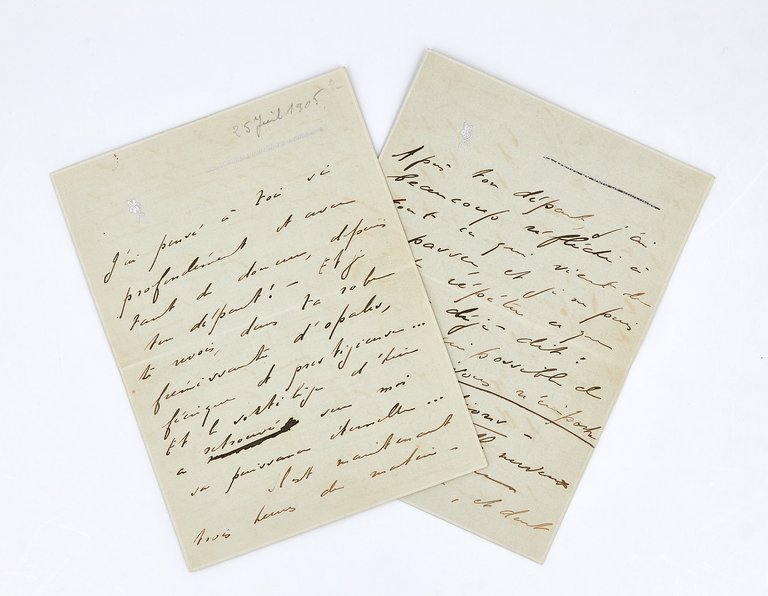 25 Juil 1905
J'ai pensé à toi si
profondément et avec
tant de douceur, depuis
ton départ! - Et je
te revois, dans ta robe
frémissante d'opales,
féerique et prestigieuse...
Et le sortilège d'hier
a retrouvé sur moi
sa puissance éternelle...
Il est maintenant
trois heures du matin -
Après ton départ, j'ai
beaucoup réfléchi à
tout ce qui vient de
passer, et je ne puis
répéter ce que
déjà dit!
impossible de
sous n'importe
-
nerveux
, et dont